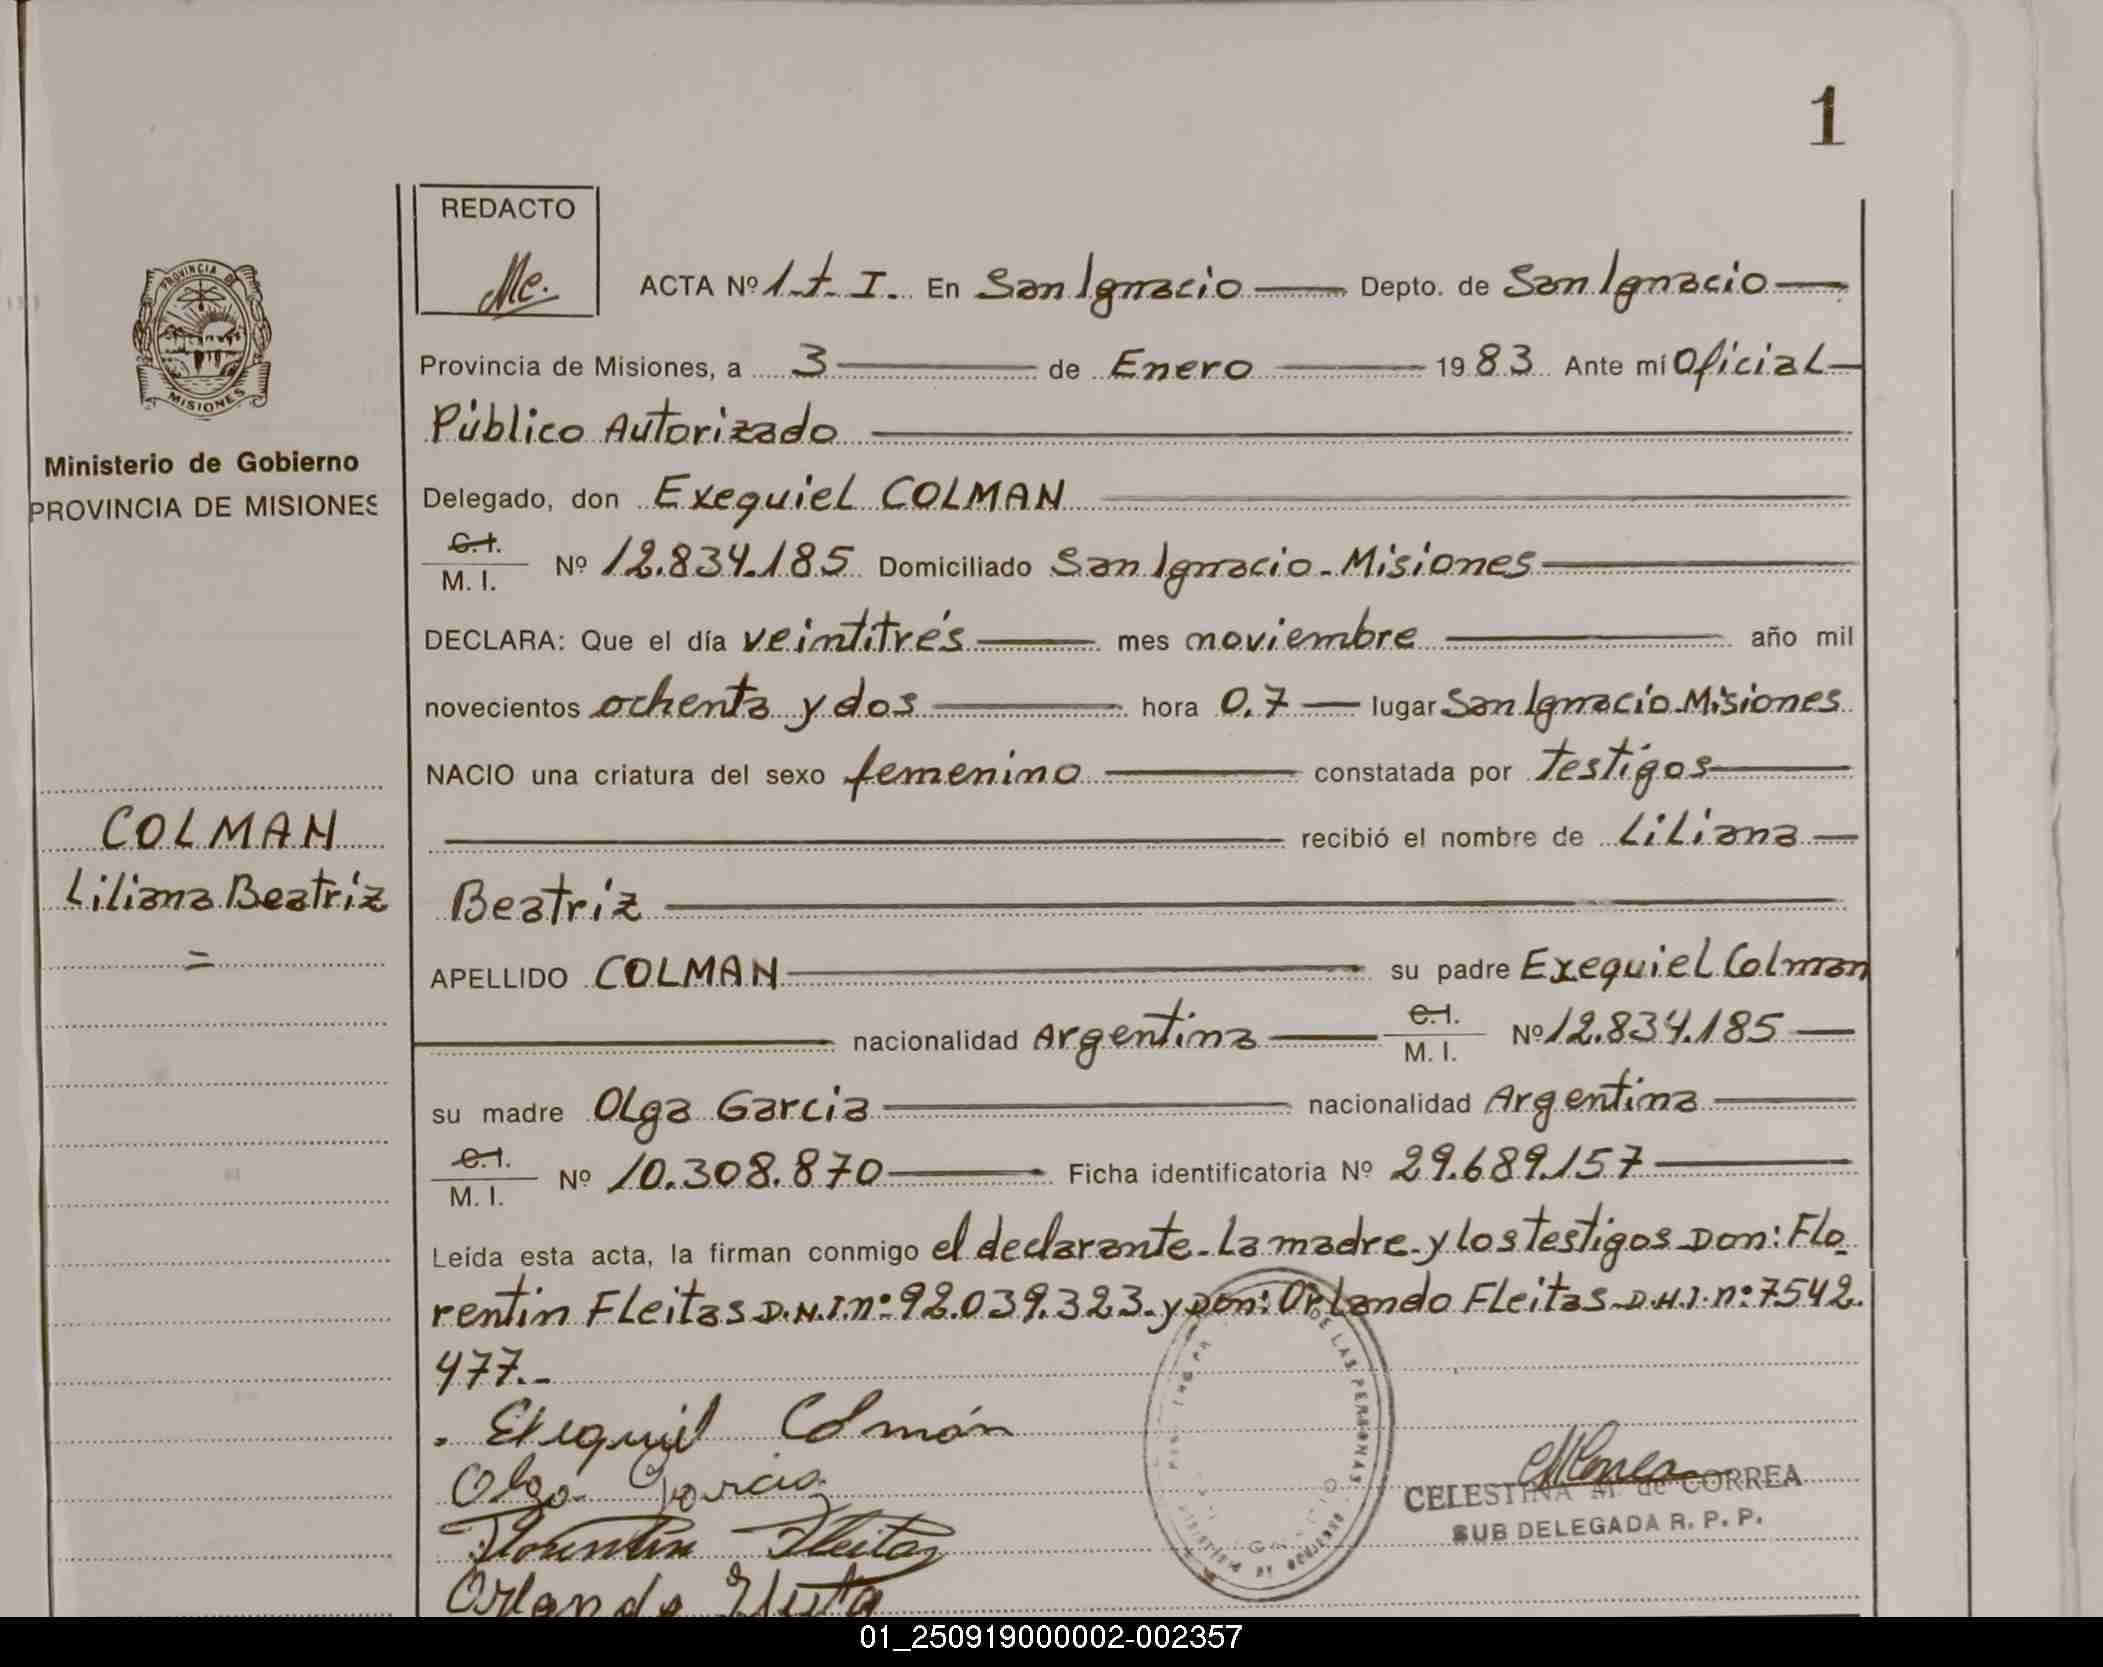 1
REDACTO
Me.
ACTA Nº 1-t-I. En San Ignacio Depto. de San Ignacio
Provincia de Misiones, a 3 de Enero 1983 Ante mí Oficial
Público Autorizado
Delegado, don Exequiel COLMAN
C.I. M.I. Nº 12.834.185 Domiciliado San Ignacio-Misiones
DECLARA: Que el día veintitrés mes noviembre año mil
novecientos ochenta y dos hora 0.7 lugar San Ignacio-Misiones
NACIO una criatura del sexo femenino constatada por testigos
recibió el nombre de Liliana
Beatriz
APELLIDO COLMAN su padre Exequiel Colman
nacionalidad Argentina C.I. M.I. Nº 12.834.185
su madre Olga Garcia nacionalidad Argentina
C.I. M.I. Nº 10.308.870 Ficha identificatoria Nº 29.689.157
Leída esta acta, la firman conmigo el declarante-La madre-y los testigos Don: Flo-
rentin Fleitas D.N.I.nº:92.039.323-y Don: Orlando Fleitas-D.N.I.nº:7542.
477.-
Exequiel Colmán
Olga Garcia
Florentin Fleitas
Orlando Fleita
DE LAS PERSONAS
MINISTERIO DE GOBIERNO
CELESTINA M. de CORREA
SUB DELEGADA R. P. P.
PROVINCIA DE
MISIONES
Ministerio de Gobierno
PROVINCIA DE MISIONES
COLMAN
Liliana Beatriz
=
01_250919000002-002357